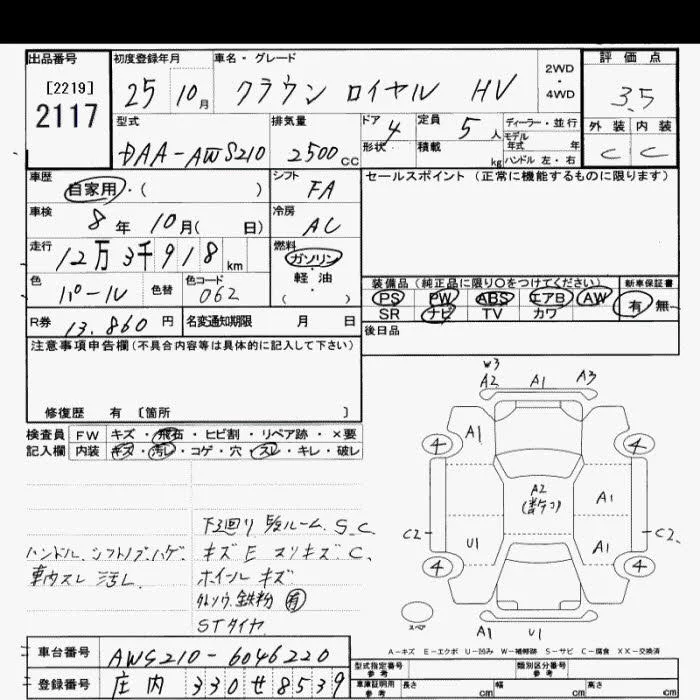 出品番号 初度登録年月 車名・グレード 評価点
[2219]
2117
25 10月 クラウン ロイヤル HV 2WD・4WD 3.5
型式 排気量 ドア 4 定員 5人 ディーラー・並行 外装 内装
DAA-AWS210 2500CC 形状 積載 kg モデル年式 年 C C
ハンドル 左・右
車歴 シフト セールスポイント(正常に機能するものに限ります)
自家用・( ) FA
車検 8年 10月( 日) 冷房 AC
走行 12万3千918km 燃料 ガソリン
軽・油
( )
色 パール 色替 色コード 062
装備品(純正品に限り○をつけてください) 新車保証書
PS PW ABS エアB AW 有・無
SR ナビ TV カワ
R券 13,860円 名変通知期限 月 日 後日品
注意事項申告欄(不具合内容等は具体的に記入して下さい)
修復歴 有 〔箇所 〕
検査員 FW キズ・飛石・ヒビ割・リペア跡・×要
記入欄 内装 キズ・汚レ・コゲ・穴・スレ・キレ・破レ
W3
A2 A1 A3
4 A1 4
A2
A1
C2 C2
U1 A1
4 4
スペア
A1 U1
下廻り S.C
ハンドル、シフトノブハゲ、 キズE スリキズC、
車内スレ 汚レ ホイールキズ
鉄粉 有
STタイヤ
A-キズ E-エクボ U-凹み W-補修跡 S-サビ C-腐食 XX-交換済
車台番号 AWS210-6046220
型式指定番号 参考 類別区分番号 参考
登録番号 庄内 330 せ 8539
車庫証明用 参考 長さ cm 幅 cm 高さ cm